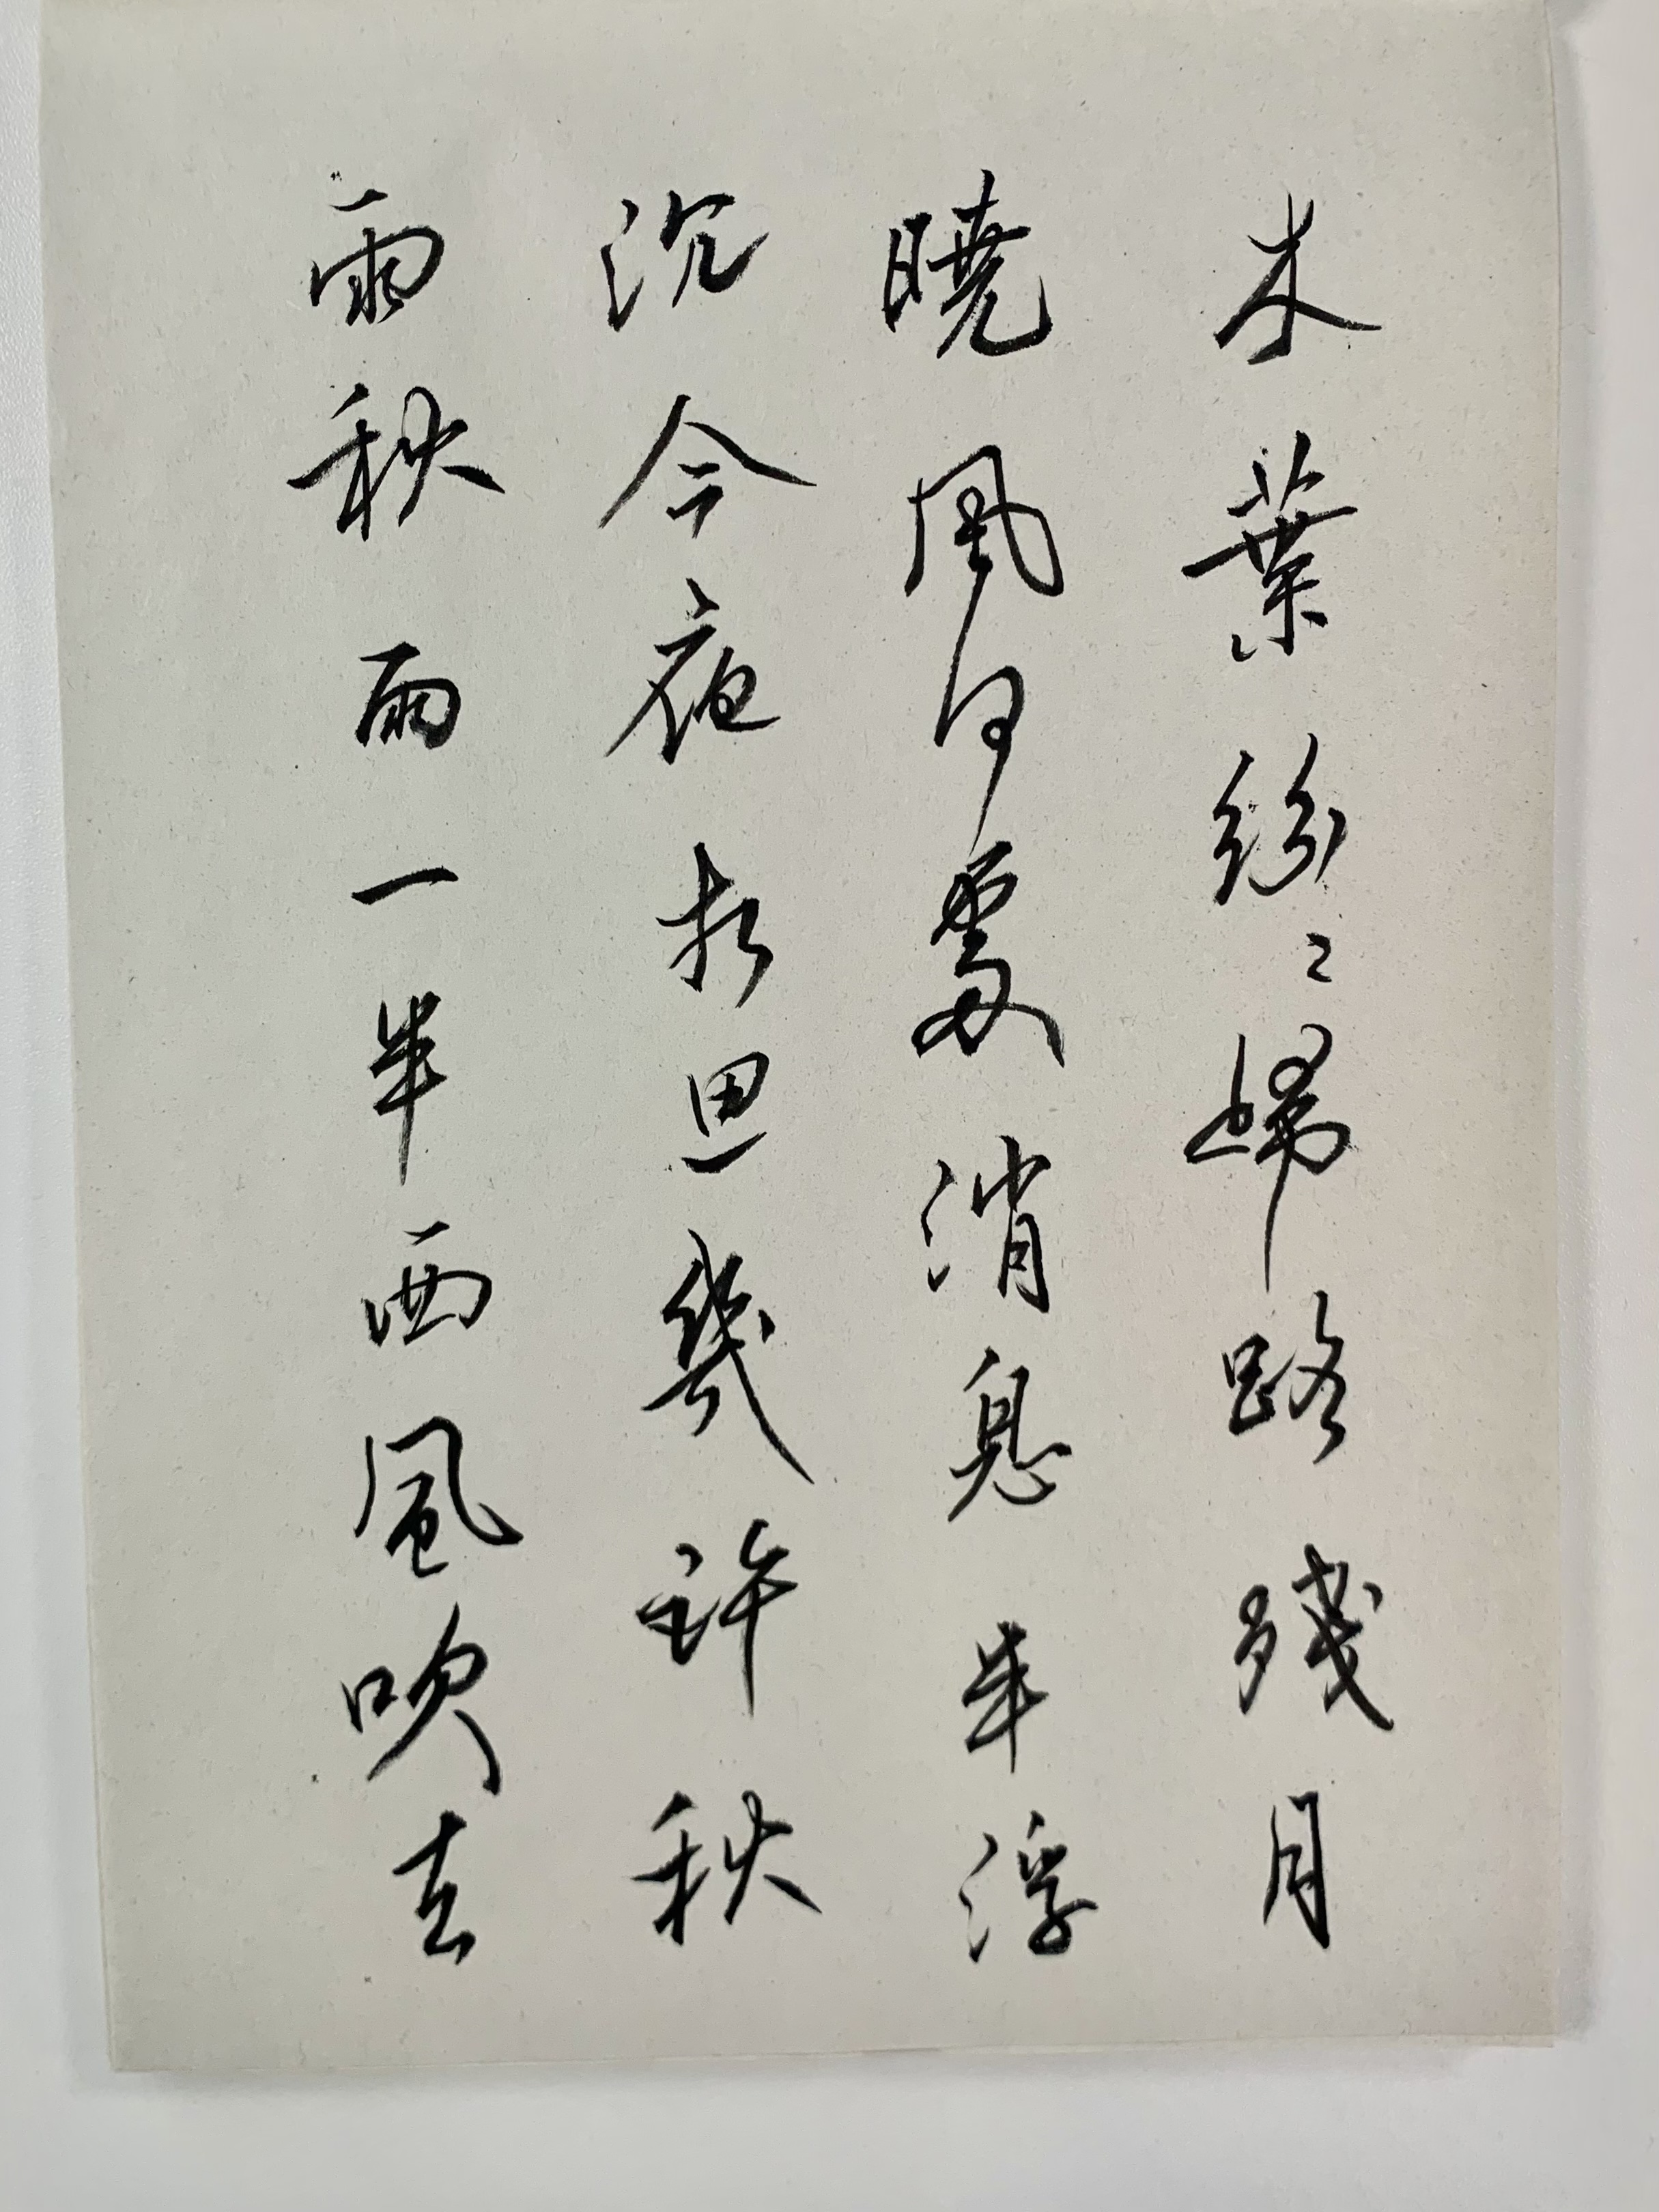 木葉紛〻歸路殘月
曉風何處消息半浮
沉今夜相思幾許秋
雨秋雨一半西風吹去